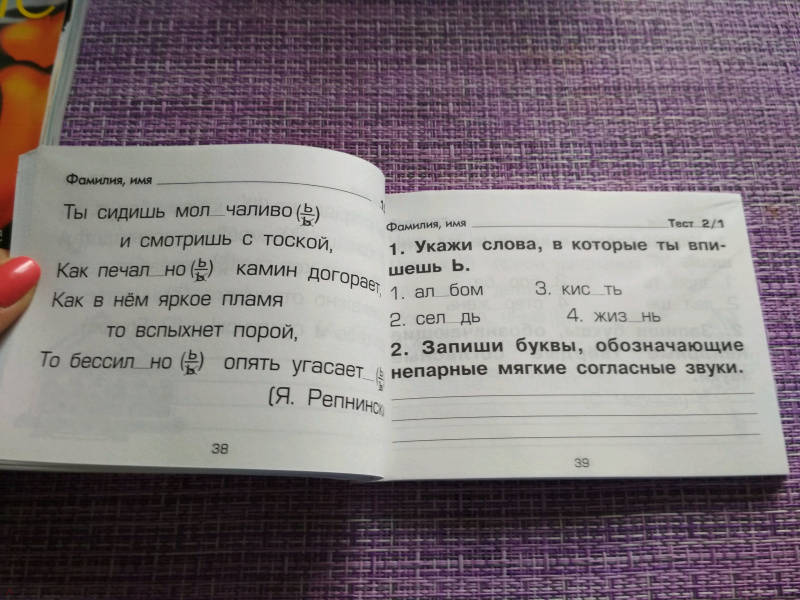 Фамилия, имя
Ты сидишь мол_чаливо (ь/ь)
и смотришь с тоской,
Как печал_но (ь/ь) камин догорает,
Как в нём яркое пламя
то вспыхнет порой,
То бессил_но (ь/ь) опять угасает_
(Я.
38
Фамилия, имя
Тест 2/1
1. Укажи слова, в которые ты впи-
шешь Ь.
1. ал_бом 3. кис_ть
2. сел_дь 4. жиз_нь
2. Запиши буквы, обозначающие
непарные мягкие согласные звуки.
39